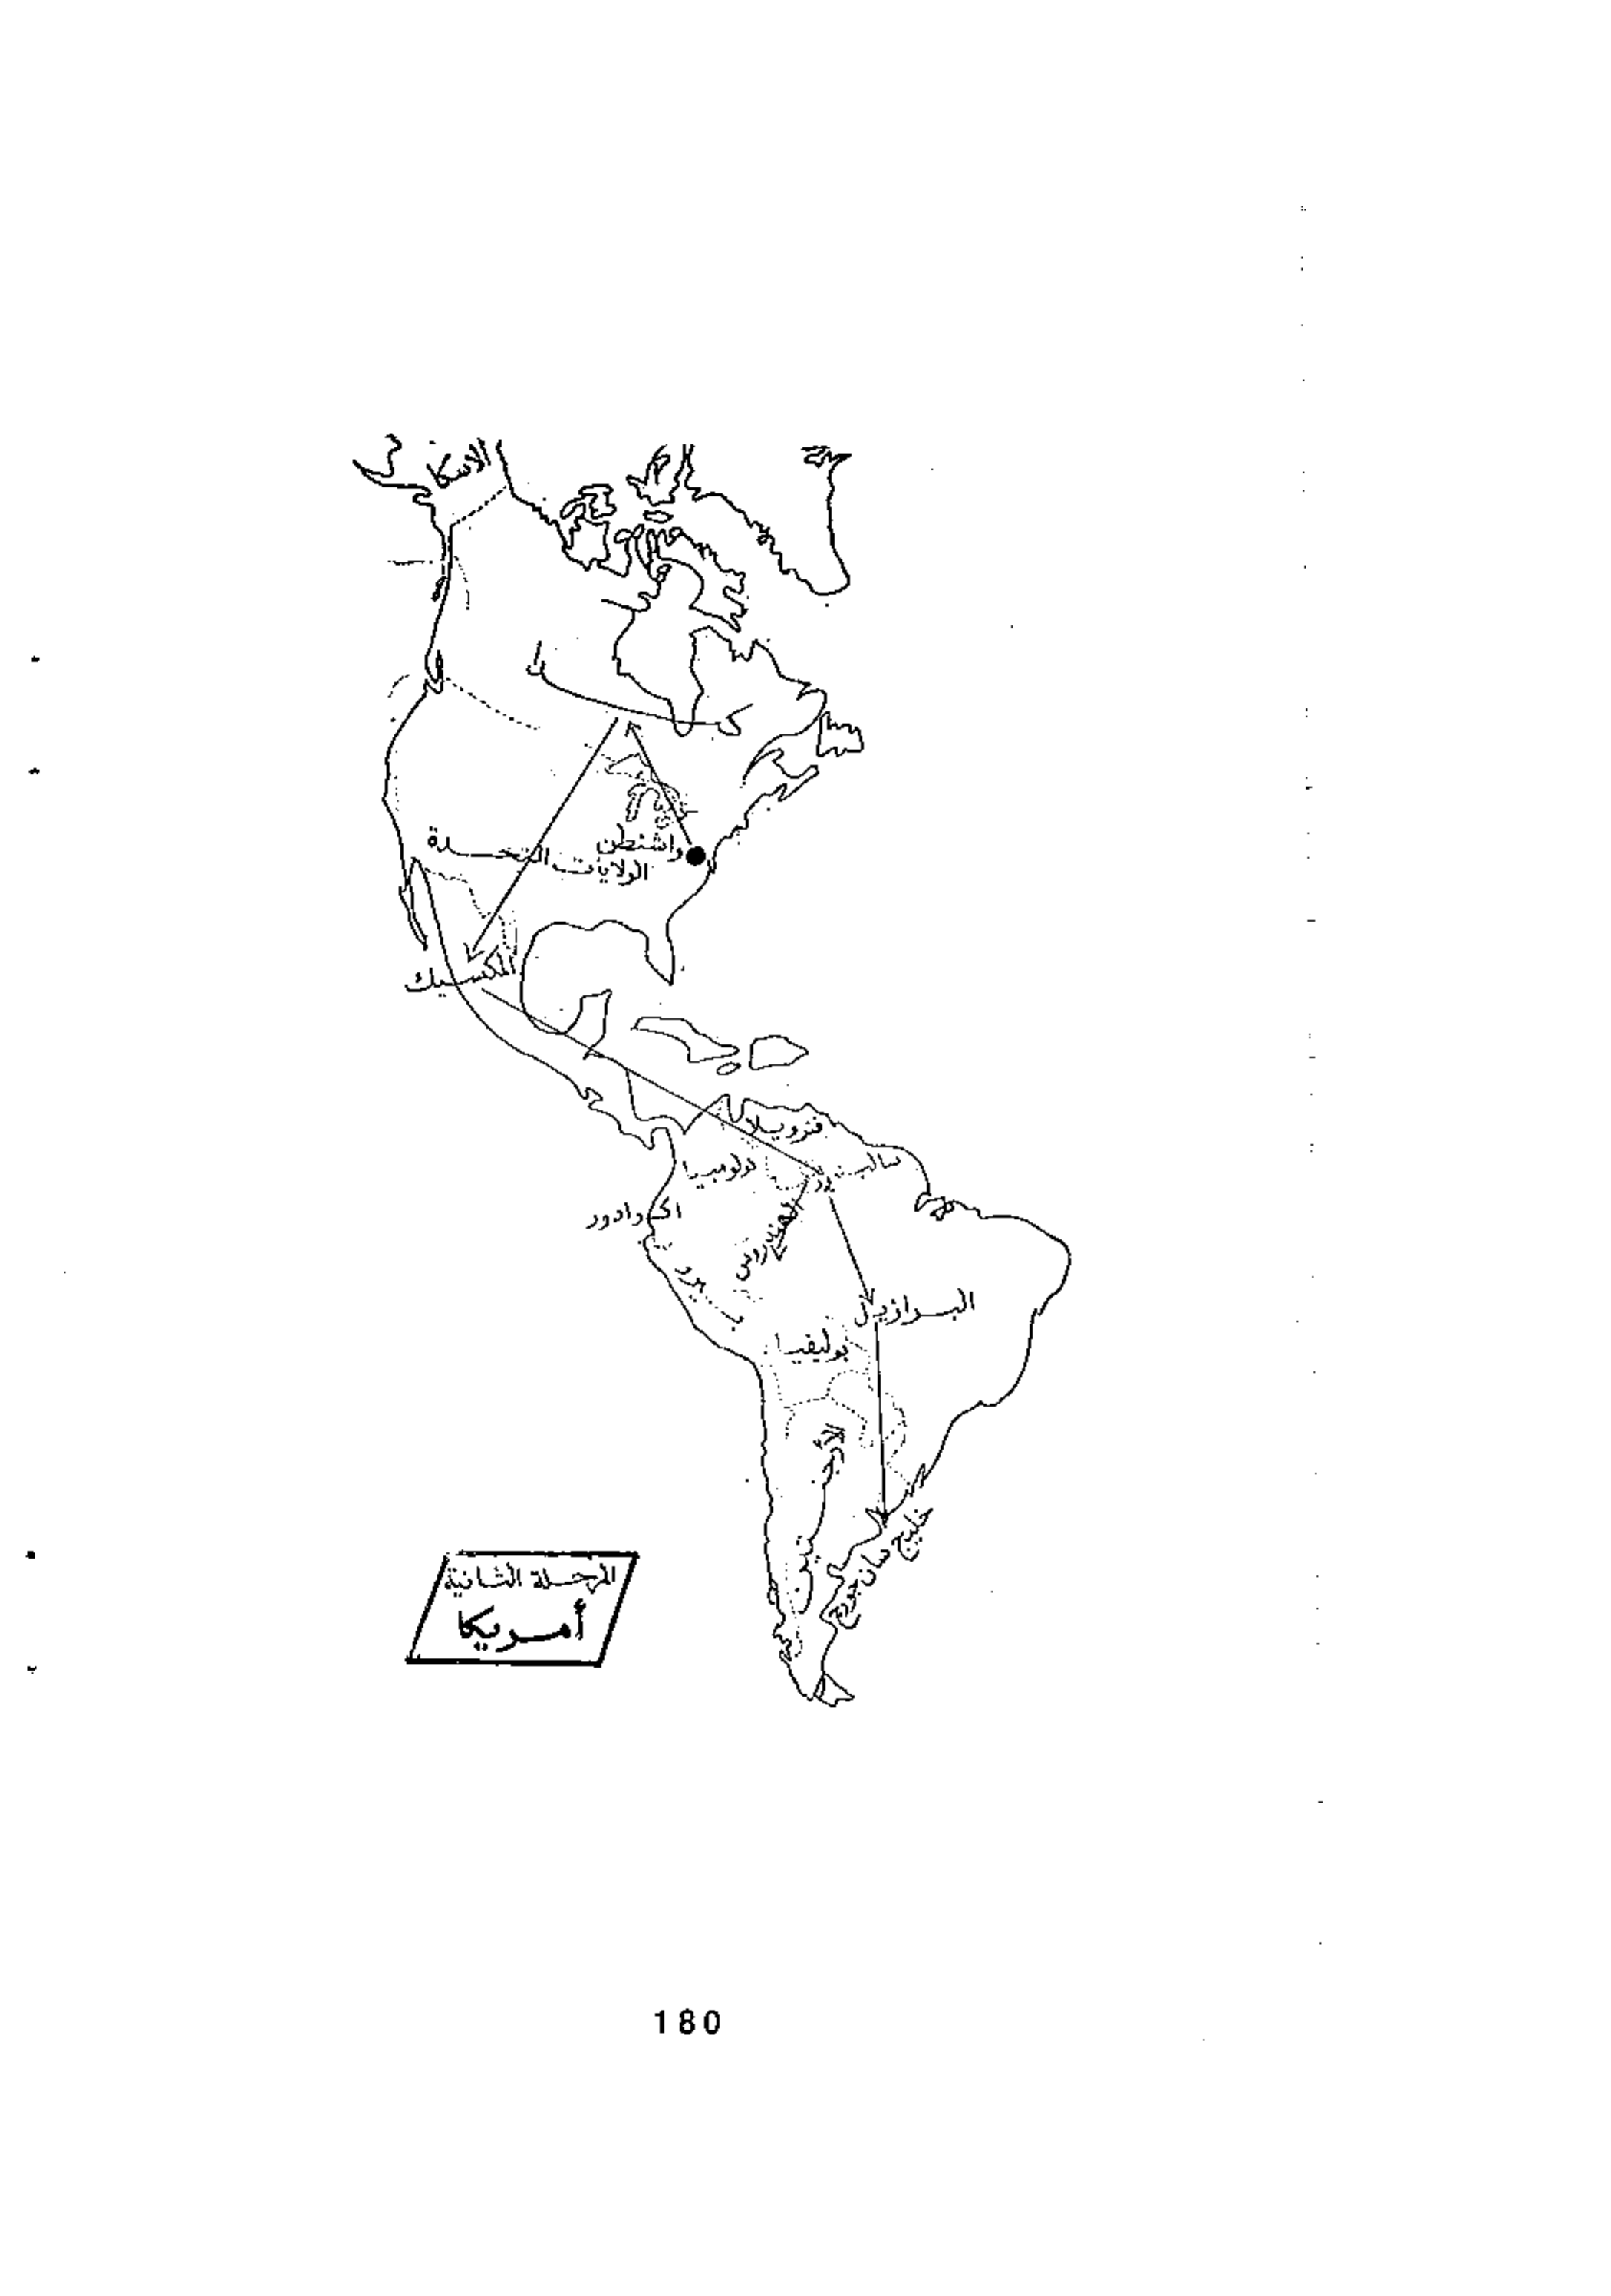 الاسكا
واشنطن
الولايات المتحدة
المكسيك
فنزويلا
كولومبيا
اكوادور
بيرو
البرازيل
بوليفيا
خليج سان جورج
المرحلة الثانية
أمريكا
180